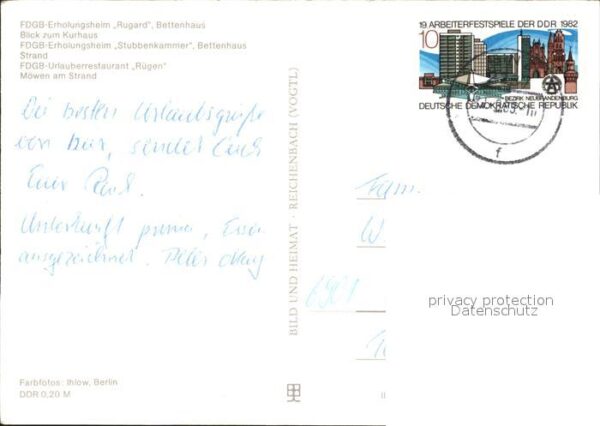 FDGB-Erholungsheim „Rugard", Bettenhaus
Blick zum Kurhaus
FDGB-Erholungsheim „Stubbenkammer", Bettenhaus
Strand
FDGB-Urlauberrestaurant „Rügen"
Möwen am Strand
19. ARBEITERFESTSPIELE DER DDR 1982
10
BEZIRK NEUBRANDENBURG
DEUTSCHE DEMOKRATISCHE REPUBLIK
f
Die besten Urlaubsgrüße
von hier, sendet Euch
Euer
Unterkunft prima, Essen
ausgezeichnet. Peter
BILD UND HEIMAT · REICHENBACH (VOGTL)
Fam.
W
6901
privacy protection
Datenschutz
Farbfotos: Ihlow, Berlin
DDR 0,20 M